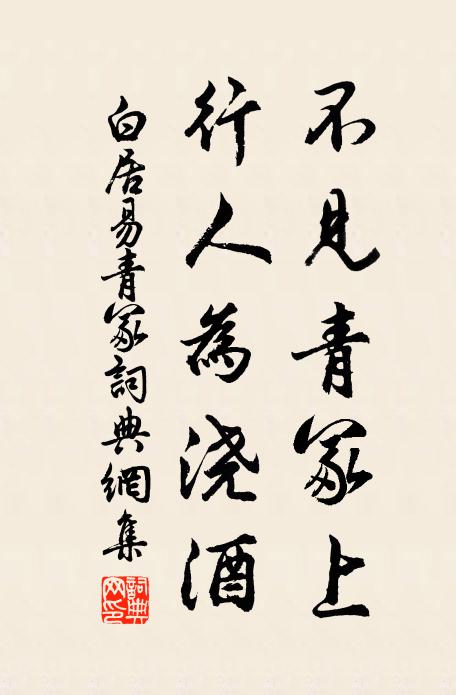 不見青冢上
行人為浇酒
白居易青冢詞典網集
詞典网印